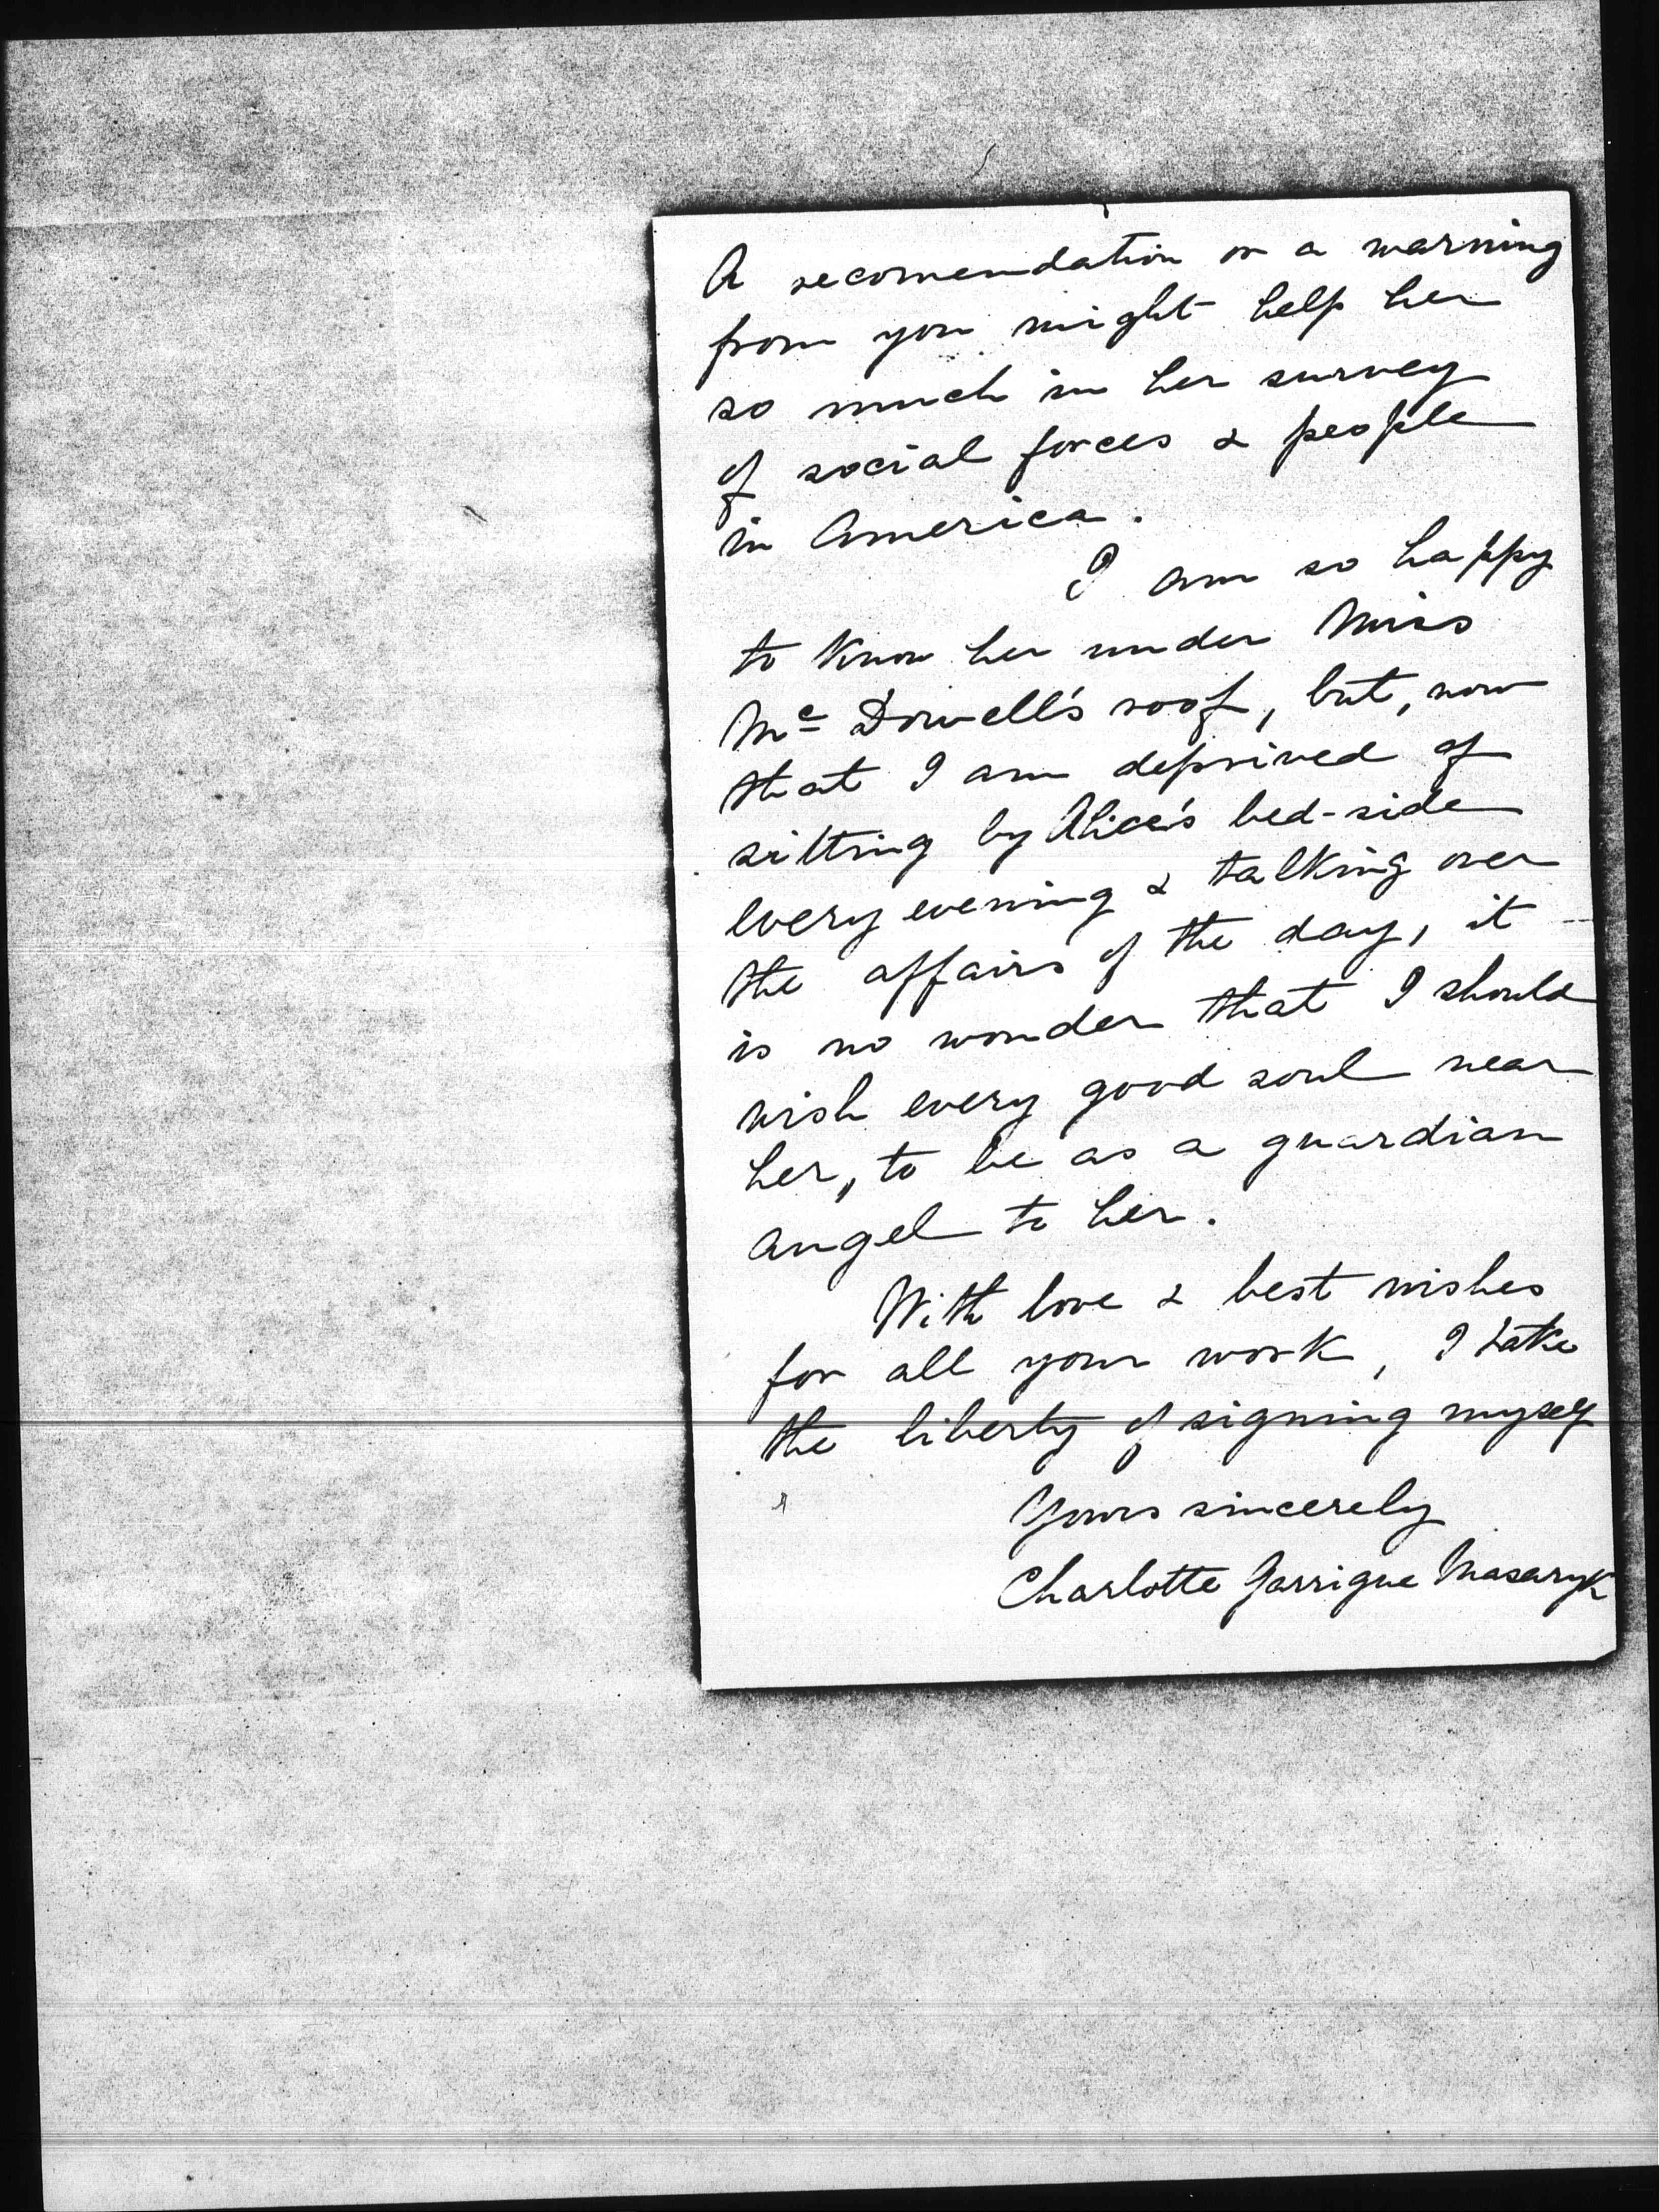 A recomendation or a warning
from you might help her
so much in her survey
of social forces & people
in America.
I am so happy
to know her under Miss
Mc Dowell's roof, but, now
that I am deprived of
sitting by Alice's bed-side
every evening & talking over
the affairs of the day, it
is no wonder that I should
wish every good soul near
her, to be as a guardian
angel to her.
With love & best wishes
for all your work, I take
the liberty of signing myself
Yours sincerely
Charlotte Garrigue Masaryk